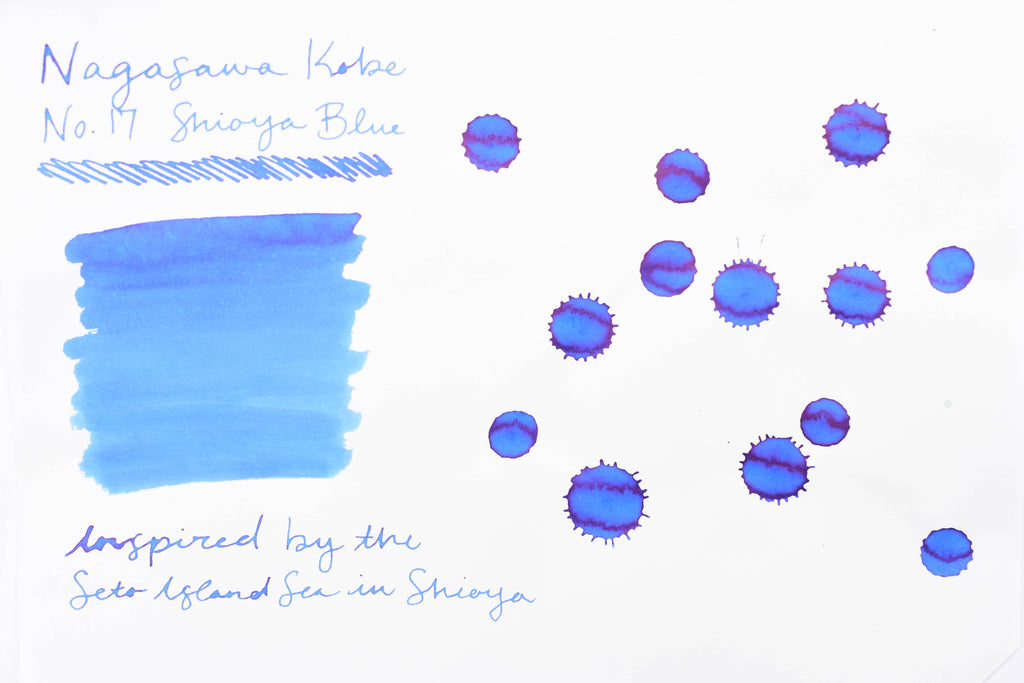 Nagasawa Kobe
No. 17 Shioya Blue
Inspired by the
Seto Island Sea in Shioya